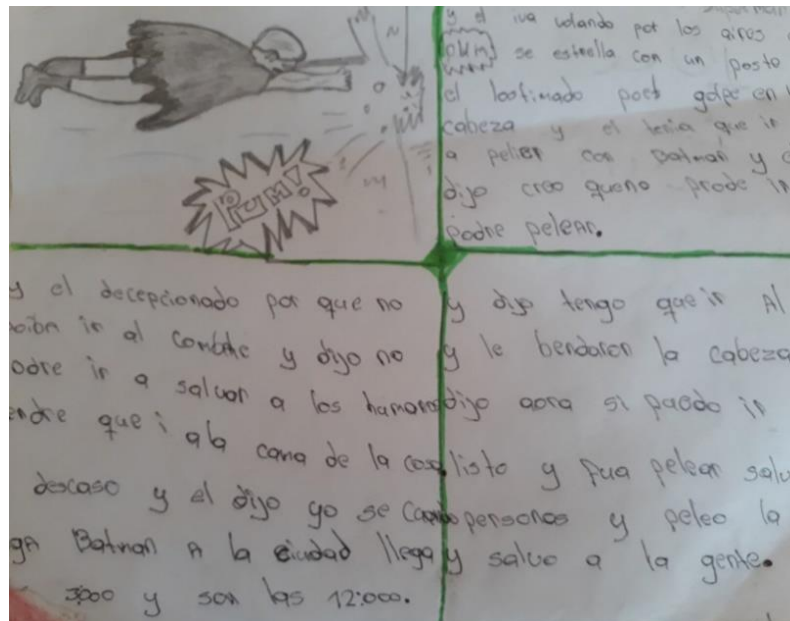 PUM!
y el iva volando por los aires
se estrella con un poste
el lastimado golpe en
cabeza y el tenia que ir
a peliar con Batman y
dijo creo queno ir
podre pelear.
y el decepcionado por que no
ir al combate y dijo no
odre ir a salvar a los humanos
endre que i ala cama de la
descaso y el dijo yo se cuando
ga Batman A la ciudad llega
3:000 y son las 12:000.
y dijo tengo que ir Al
y le bendaron la cabeza
dijo aora si puedo ir
listo y fua pelear salv
personas y peleo la
y salvo a la gente.